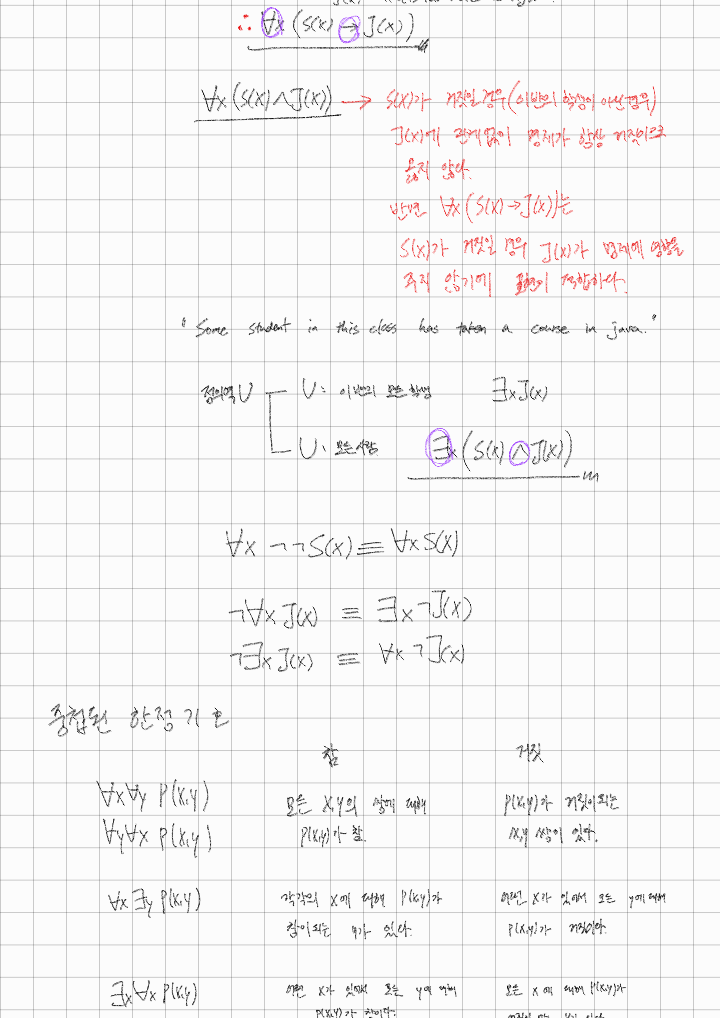 ∴ ∀x (S(x) → J(x))
∀x (S(x) ∧ J(x)) → S(x)가 거짓일 경우(이반의 학생이 아닌 경우)
J(x)에 관계없이 명제가 항상 거짓이므로
옳지 않다.
반면 ∀x (S(x) → J(x))는
S(x)가 거짓일 경우 J(x)가 명제에 영향을
주지 않기에 표현이 적합하다.
"Some student in this class has taken a course in java."
정의역 U
U: 이 반의 모든 학생 ∃x J(x)
U: 모든 사람 ∃x (S(x) ∧ J(x))
∀x ¬¬S(x) ≡ ∀x S(x)
¬∀x J(x) ≡ ∃x ¬J(x)
¬∃x J(x) ≡ ∀x ¬J(x)
중첩된 한정기호
참 거짓
∀x∀y P(x,y) 모든 x,y의 쌍에 대해 P(x,y)가 거짓이 되는
∀y∀x P(x,y) P(x,y)가 참. x,y 쌍이 있다.
∀x ∃y P(x,y) 각각의 x에 대해 P(x,y)가 어떤 x가 있어서 모든 y에 대해
참이 되는 y가 있다. P(x,y)가 거짓이다.
∃x ∀x P(x,y) 어떤 x가 있어서 모든 y에 대해 모든 x에 대해 P(x,y)가
P(x,y)가 참이다.